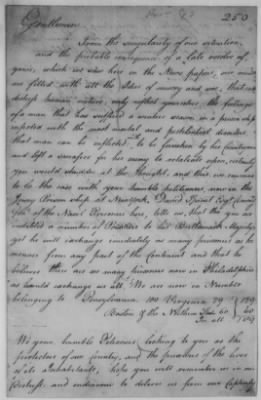 253
Gentlemen
From the singularity of our situation,
and the probable consequence of a late order of
gone, which we see here in the News papers, our minds
are filled with all the Ideas of misery and woe, that can
disturb human nature, only reflect yourselves the feelings
of a man that has suffered a winters in a prison ship
infected with the most mortal and pestilential disorders
that man can be inflicted, to be forsaken by his Countrymen
and left a sacrifice for his enemy to retaliate upon, certainly
you would shudder at the thought, and this we conceive
to be the case with your humble petitioners, now in the
Jersey Prison ship at New York. David Sproat Esqr. Commissary
Genl. of the Naval Prisoners here, tells us, that tho you are
indebted a number of Prisoners to his Britannick Majesty
yet he will exchange immediately as many prisoners as he
receives from any part of the Continent and that he
believes there are as many prisoners now in Philadelphia
as would exchange us all. We are now in Number
belonging to Pennsylvania 100 Virginia 29 129
Boston & the Northern 60
In all
We your humble Petitioners looking to you as the
protectors of our Country, and the guardians of the lives
of its Inhabitants, hope you will remember us in our
Distress, and endeavour to deliver us from our Captivity